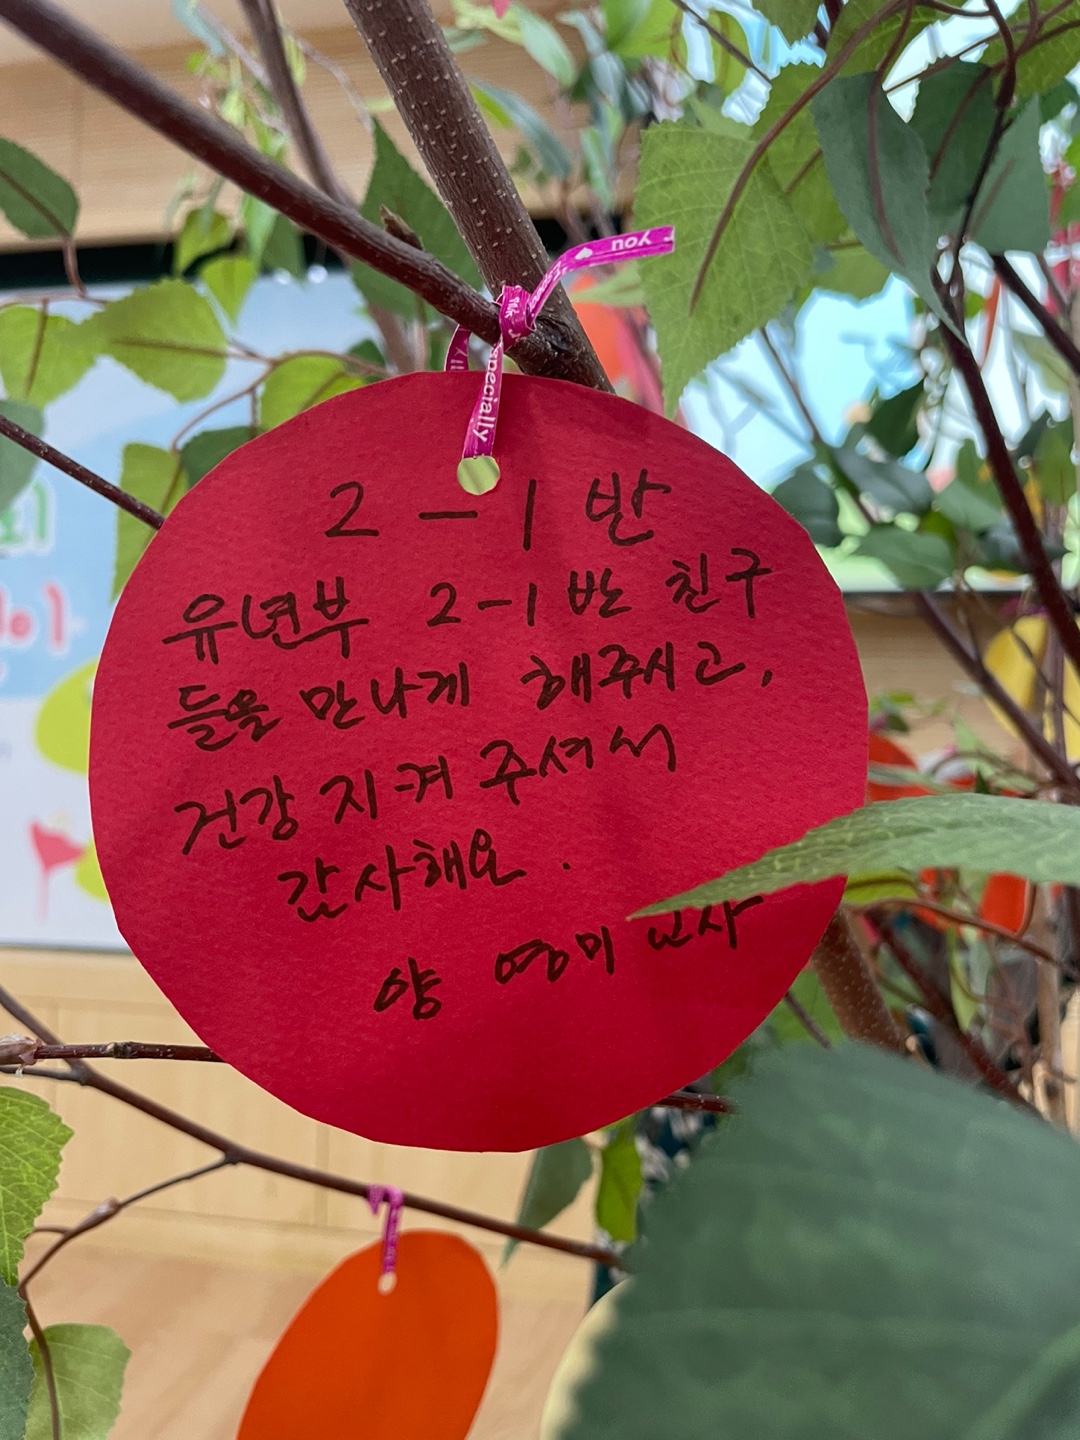 You
specially
2-1 반
유년부 2-1 반 친구
들을 만나게 해주시고,
건강 지켜 주셔서
감사해요.
양 영미 교사